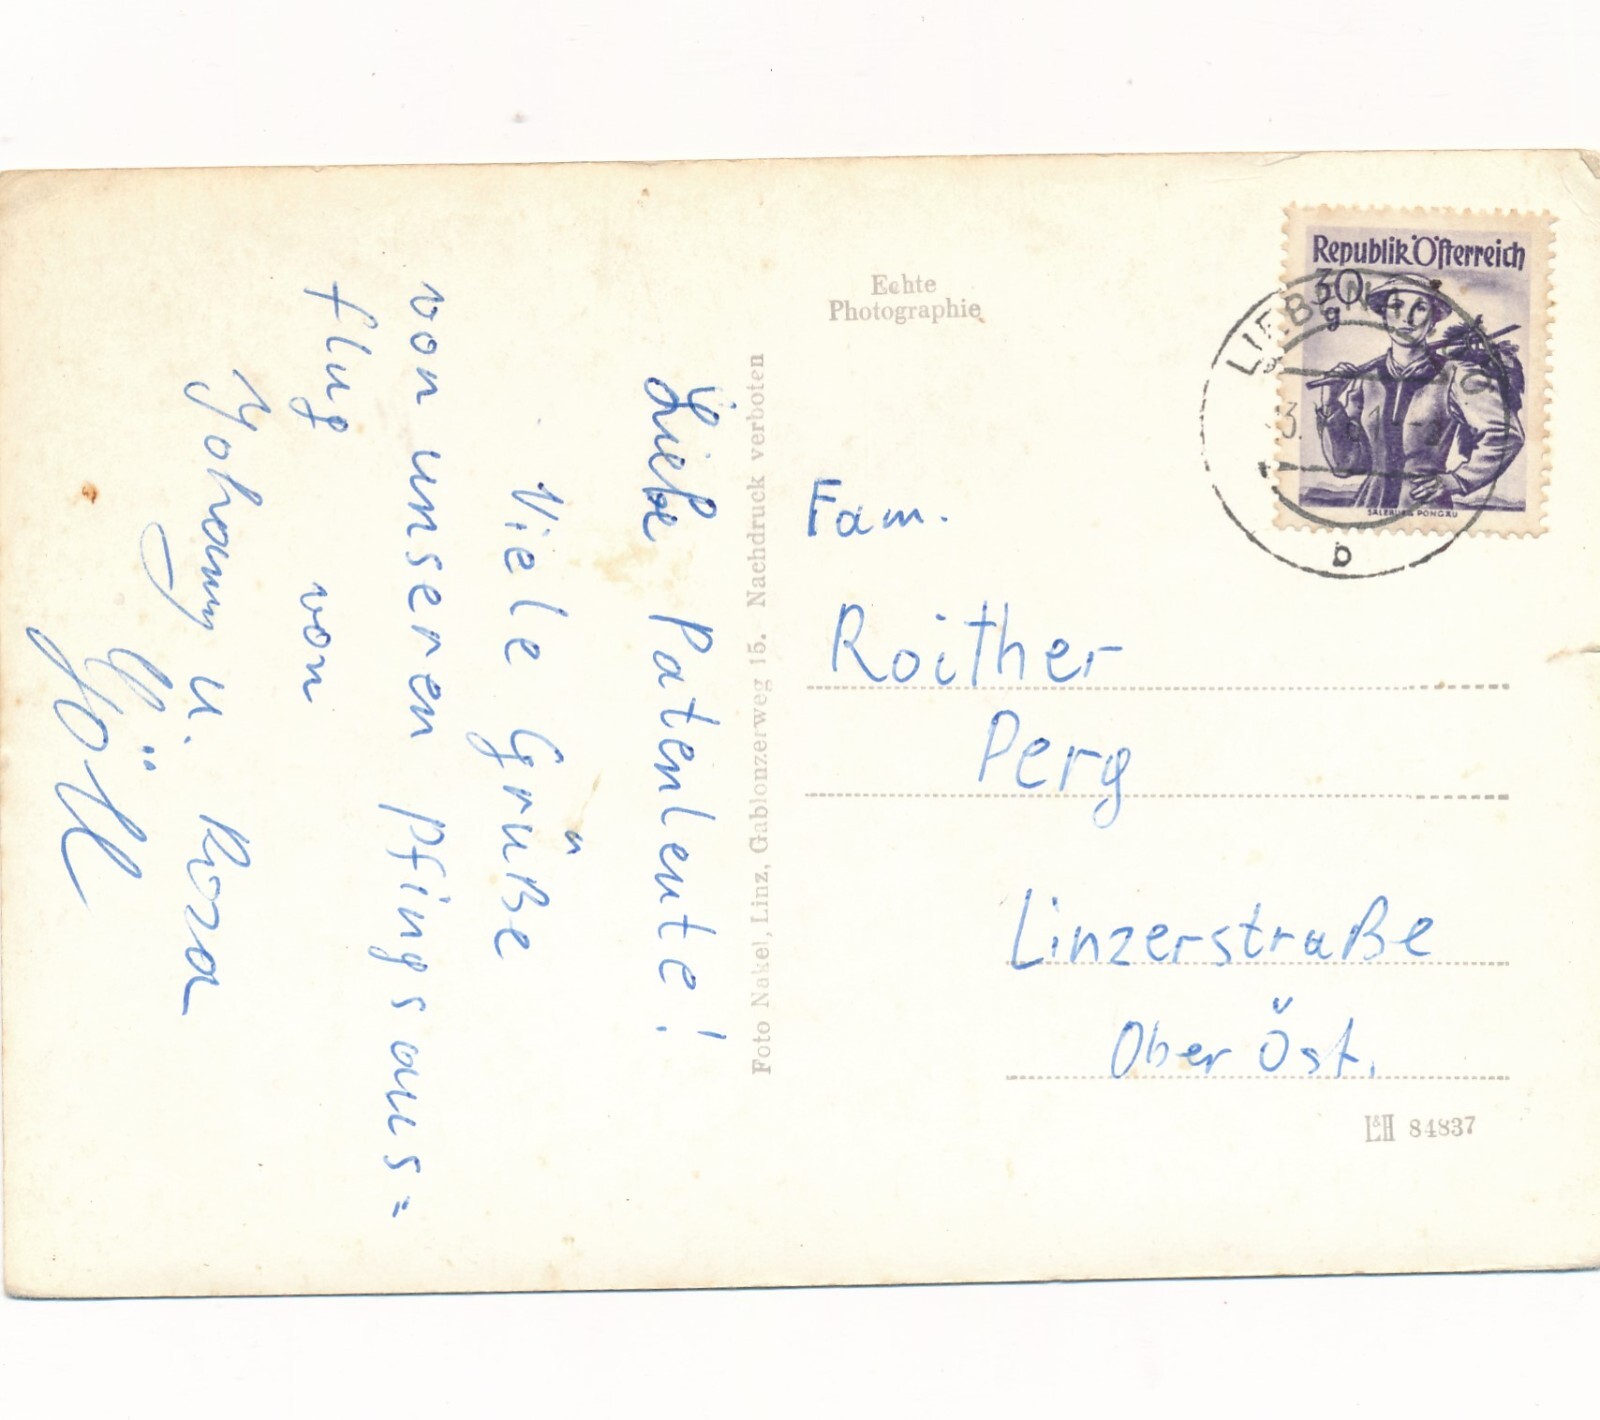 Liebe Patenleute!
Viele Grüße
von unseren Pfingsaus=
flug
von
Johann u. Rosa
Höll
Foto Nakel, Linz, Gablonzerweg 15. Nachdruck verboten
Echte
Photographie
Republik Österreich
30
g
SALZBURG PONGAU
b
Fam.
Roither
Perg
Linzerstraße
Ober Öst.
L&H 84837